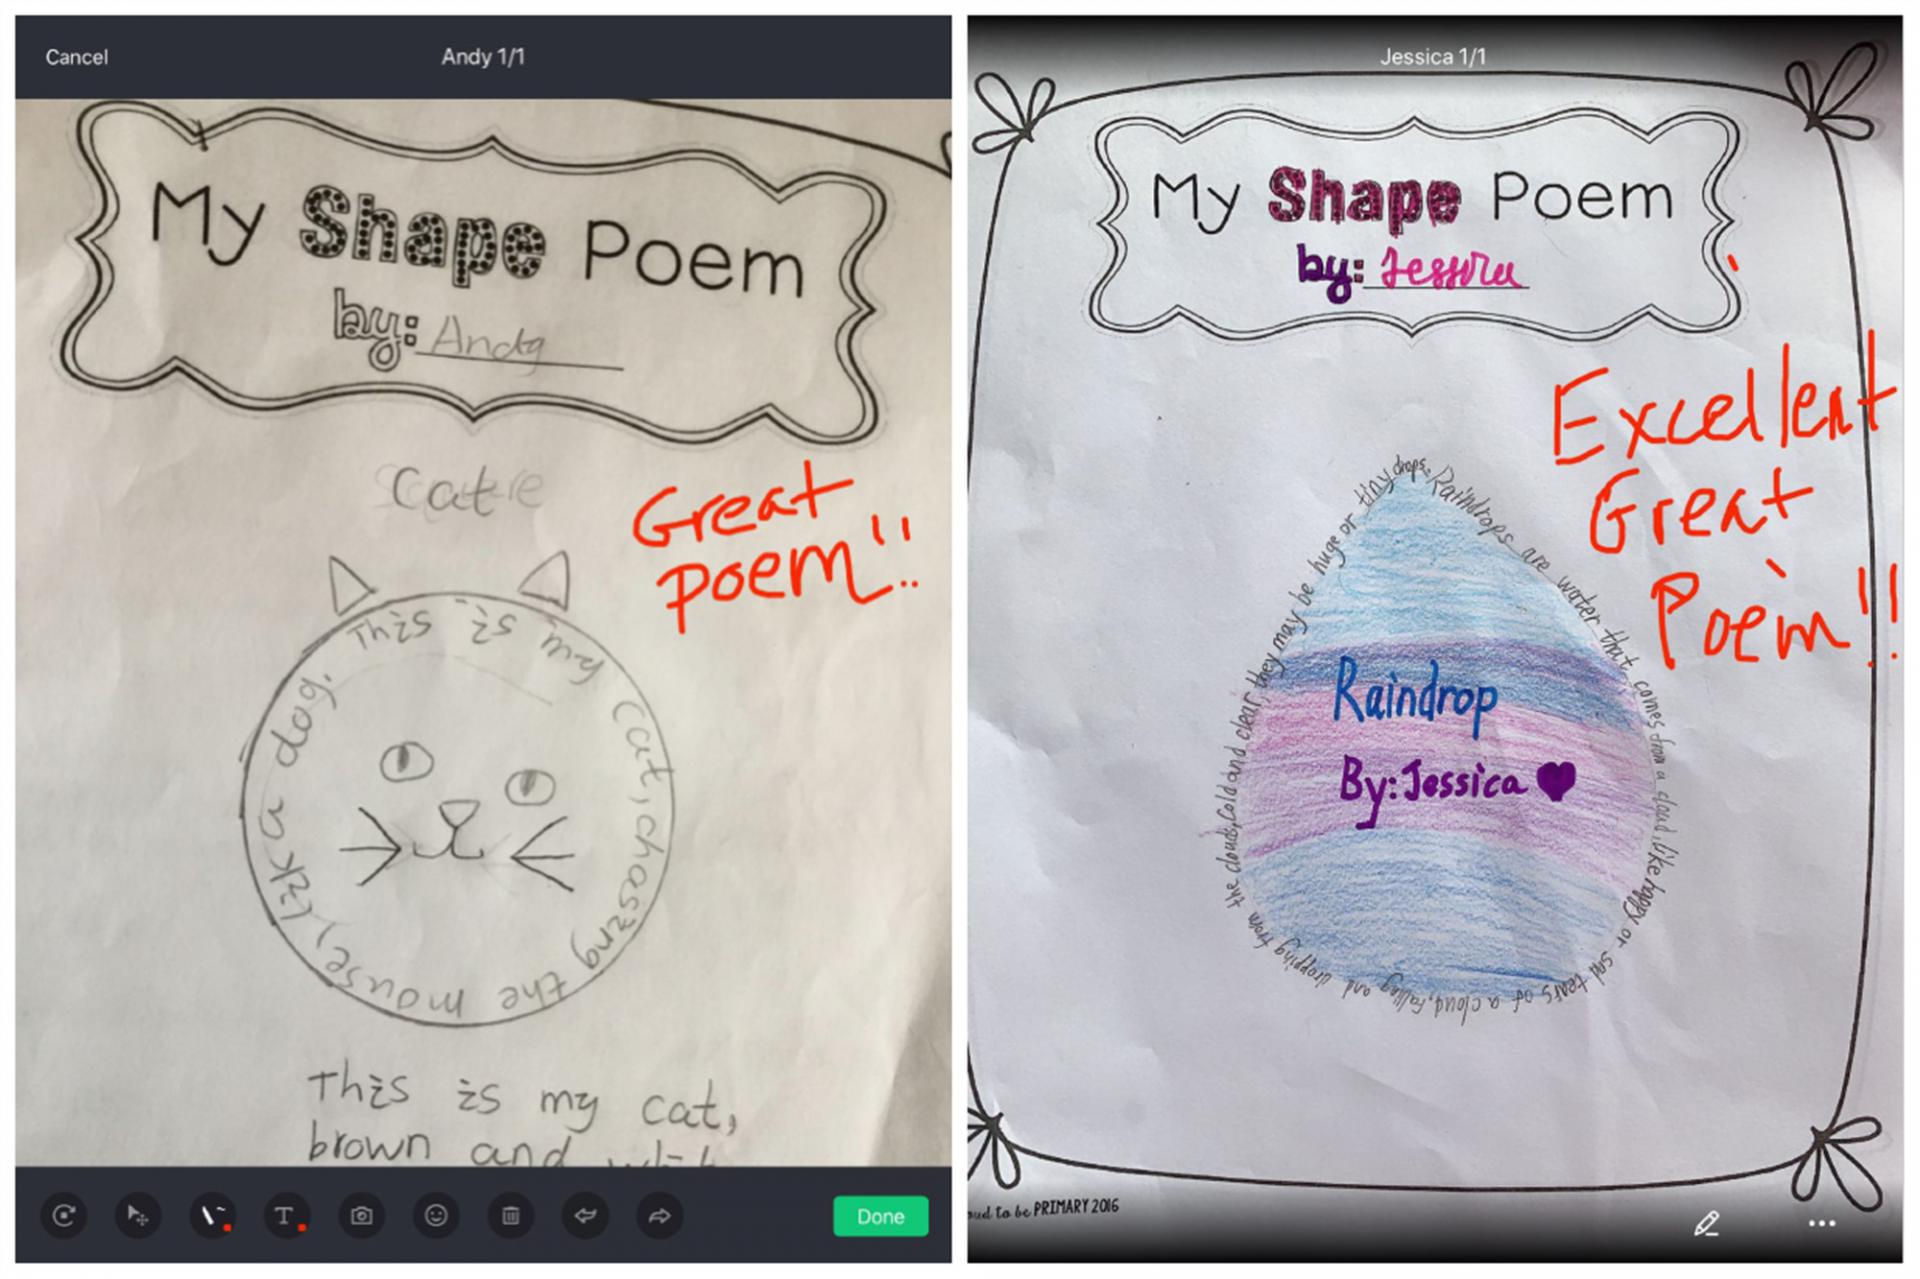 Cancel
Andy 1/1
My Shape Poem
by: Andy
Cat
Great
poem!!
This is my cat, chaszng the mouse, lzk a dog.
This is my cat,
brown and
Done
Jessica 1/1
My Shape Poem
by: Jessica
Excellent
Great
Poem!!
Raindrops are water that comes from a cloud, like happy or sad tears of a cloud, falling and dropping from the clouds, Cold and clear, they may be huge or tiny drops.
Raindrop
By: Jessica
to be PRIMARY 2016